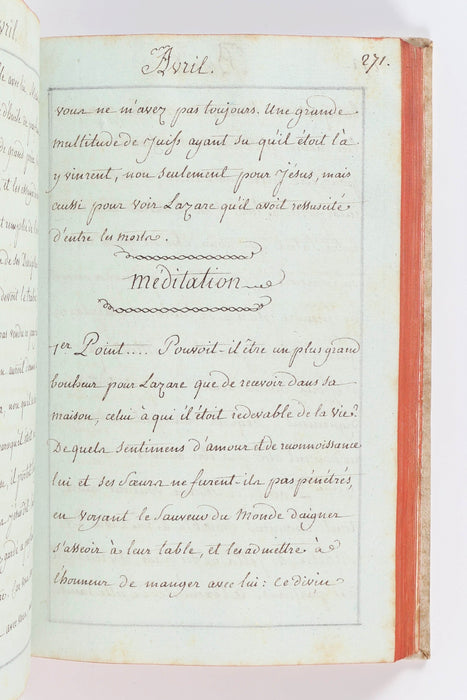 Avril.
271.
vous ne m'avez pas toujours. Une grande
multitude de Juifs ayant su qu'il étoit là
y vinrent, non seulement pour Jésus, mais
aussi pour voir Lazare qu'il avoit ressuscité
d'entre les morts.
méditation
1er Point.... Pouvoit-il être un plus grand
bonheur pour Lazare que de recevoir dans sa
maison, celui à qui il étoit redevable de la vie?
De quels sentimens d'amour et de reconnoissance
lui et ses Sœurs ne furent-ils pas pénétrés,
en voyant le Sauveur du Monde daigner
s'asseoir à leur table, et les admettre à
l'honneur de manger avec lui: Ce divin